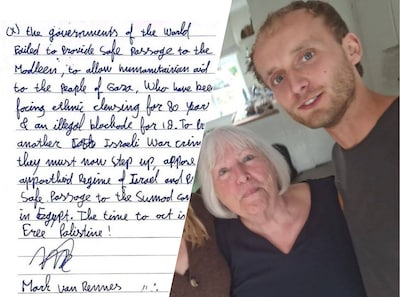 (x) the governments of the World
Failed to Provide Safe Passage to the
Madleen, to allow humanitairian aid
to the People of Gaza, Who have been
facing ethnic clensing for 80 year
& an illegal blockade for 18. To
another Israeli War crim
they must now step up, oppose
appartheid Regime of Israel and
Safe Passage to the Sumod Con
in Egypt. The time to act is
Free Palestine!
Mark van Rennes